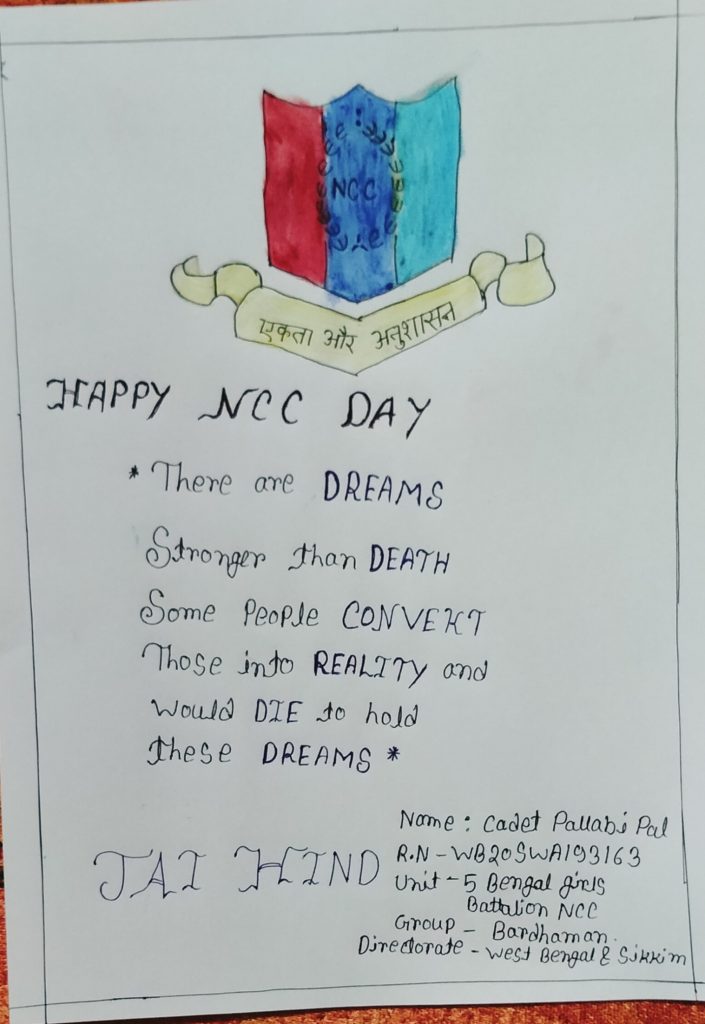 NCC
एकता और अनुशासन
HAPPY NCC DAY
* There are DREAMS
Stronger than DEATH
Some People CONVERT
Those into REALITY and
would DIE to hold
these DREAMS *
JAI HIND
Name : Cadet Pallabi Pal
R.N - WB20SWA193163
Unit - 5 Bengal girls
Battalion NCC
Group - Bardhaman.
Directorate - West Bengal & Sikkim